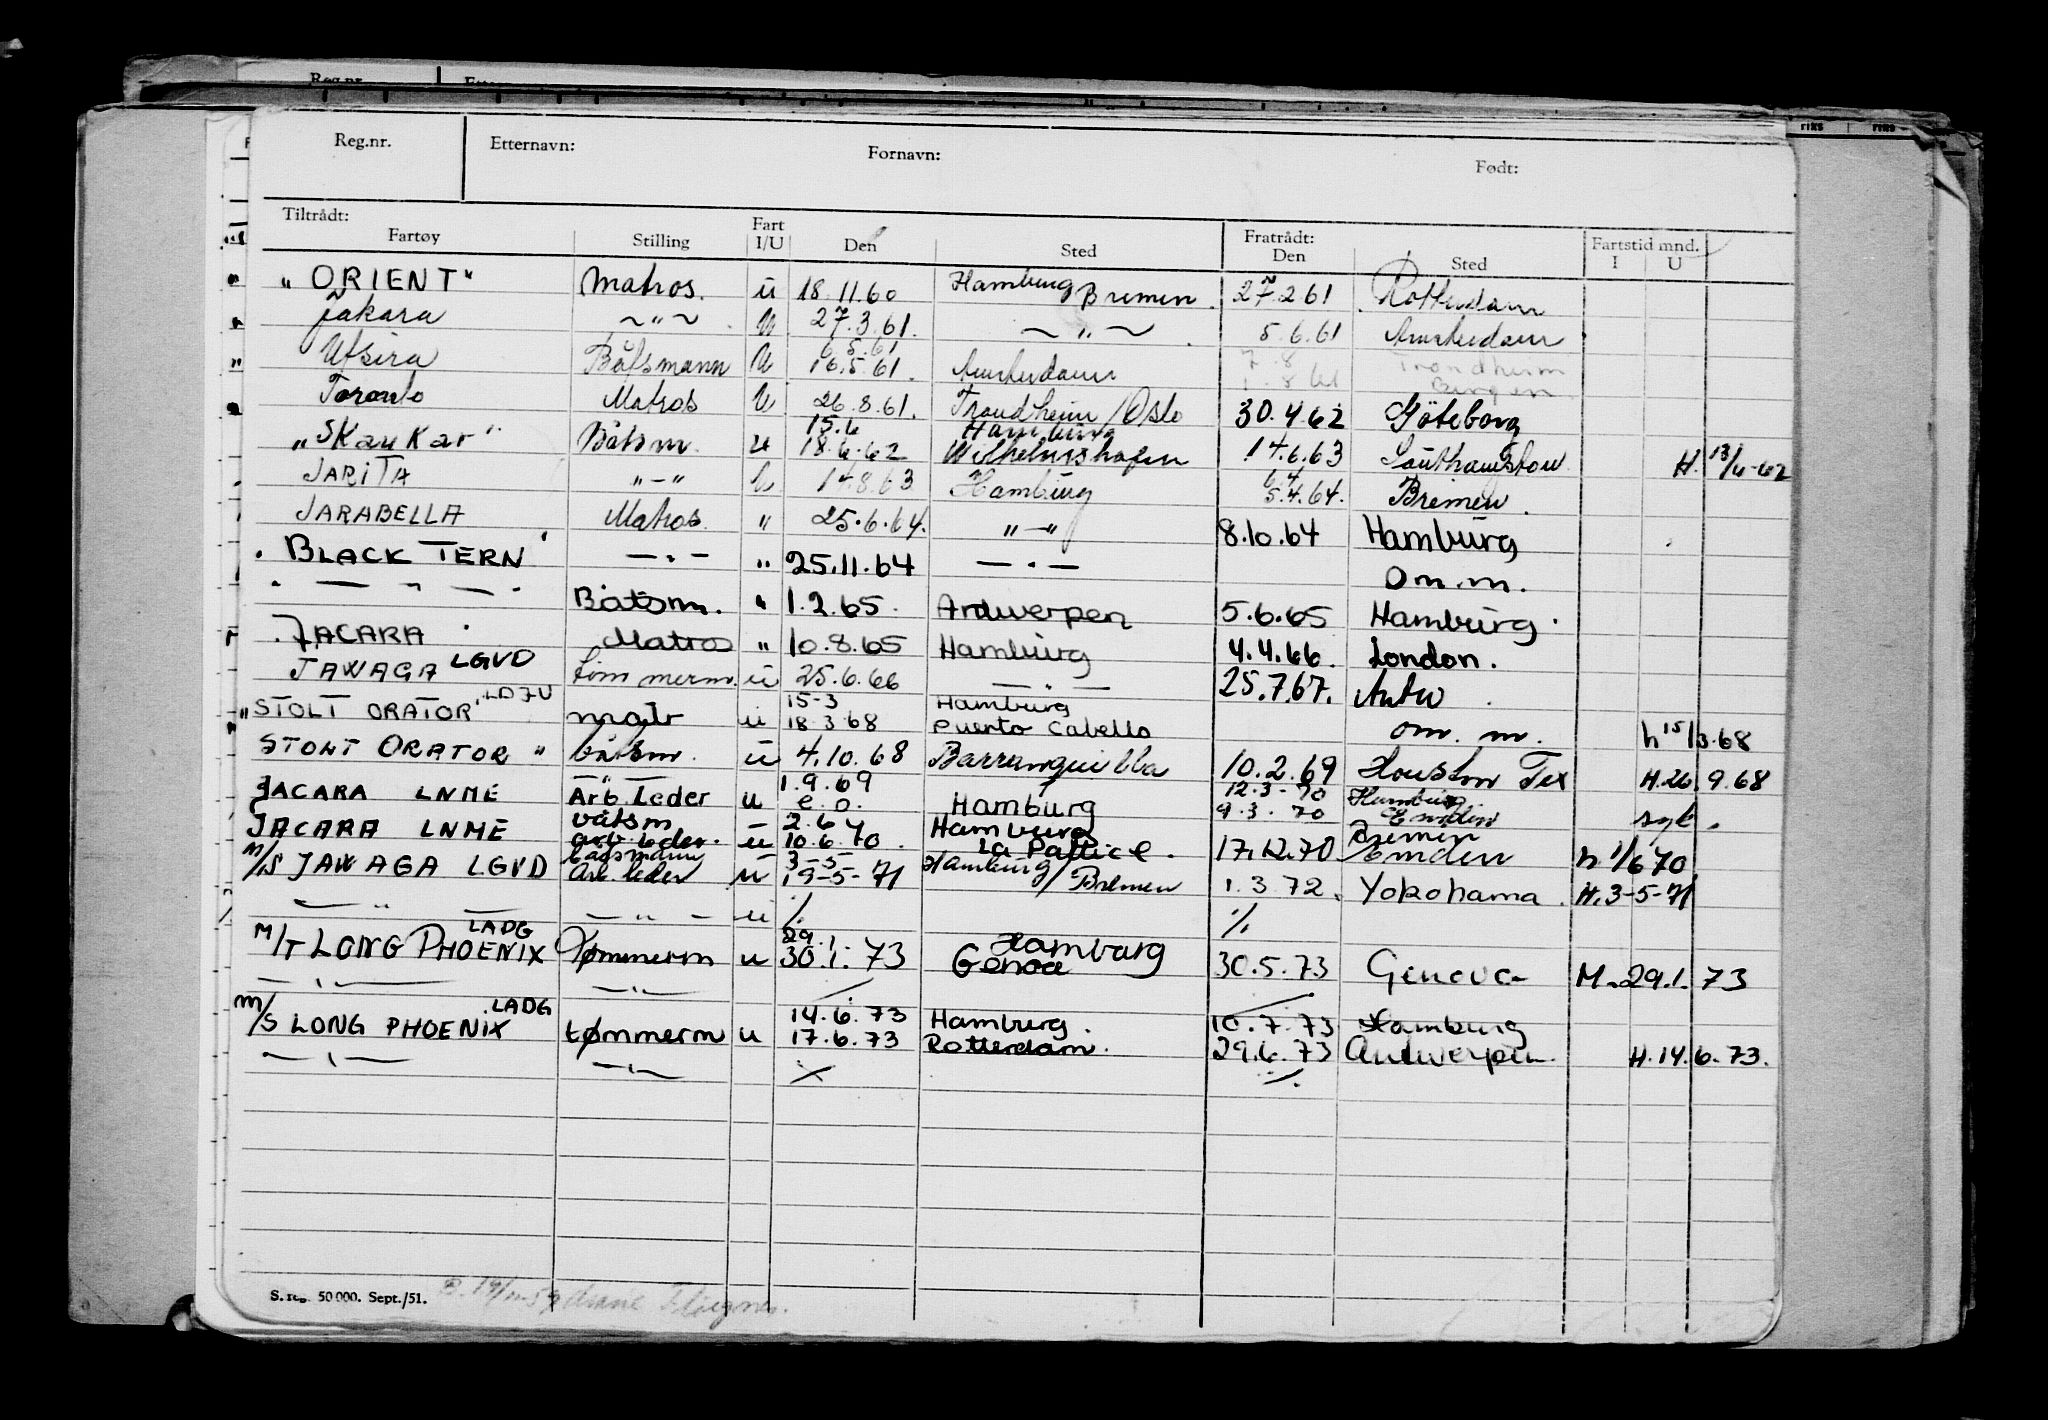 Reg.nr. Etternavn: Fornavn: Født:
Tiltrådt: Fartøy Stilling Fart I/U Den Sted Fratrådt: Den Sted Fartstid mnd. I U
"ORIENT" Matros. u 18.11.60 Hamburg Bremen. 27.2.61 Rotterdam
Jakara ~"~ U 27.3.61. ~"~ 5.6.61 Amsterdam
Utsira Båtsmann U 6.5.61 16.5.61. Amsterdam 7.8 1.8.61 Trondheim Bergen
Toronto Matros U 26.8.61. Trondheim/Oslo 30.4.62 Göteborg
"SKauKar" Båtsm. u 15.6 18.6.62 Hamburg Wilhelmshafen 14.6.63 Southampton H. 13/6-62
JARITA "-" U 14.8.63 Hamburg 6.4 5.4.64. Bremen.
JARABELLA Matros. " 25.6.64. "-" 8.10.64 Hamburg
BLACK TERN' -"- " 25.11.64 -"- Om.m.
-"- Båtsm. " 1.2.65. Antwerpen 5.6.65 Hamburg.
JACARA Matros " 10.8.65 Hamburg 4.4.66. London.
JAWAGA LGVD tømmerm. u 25.6.66 -"- 25.7.67. Antw.
"STOLT ORATOR" matr u 15-3 18.3.68 Hamburg Puerto Cabello om. m. h 15/3.68
STOLT ORATOR " båtsm. u 4.10.68 Barranquilla 10.2.69 Houston Tex H.26.9.68
JACARA LNME Arb. Leder u 1.9.69 e.o. Hamburg 12.3-70 9.3.70 Hamburg Emden syk.
JACARA LNME båtsm arb. leder. u 2.6 10.6.70. Hamburg La Pallice. 17.12.70 Bremen Emden h 1/6 70
M/S JAWAGA LGVD båtsmann arb. leder u 3-5- 19-5-71 Hamburg/Bremen 1.3.72. Yokohama. H.3-5-71
-"- -"- u % %
M/T LONG PHOENIX LADG Tømmerm u 29. 30.1.73 Hamburg Genoa 30.5.73 Genova M.29.1.73
-"- -"-
M/S LONG PHOENIX LADG tømmerm u 14.6.73 17.6.73 Hamburg. Rotterdam. 10.7.73 29.6.73 Hamburg Antwerpen. H.14.6.73.
-"- -"- % %
S. reg. 50000. Sept./51.